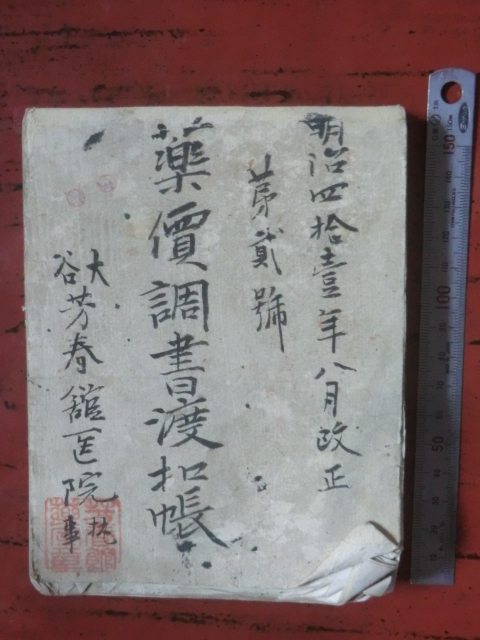 明治四拾壹年八月改正
第貳號
藥價調書渡扣帳
大谷芳春舘医院
執事
50
100
150